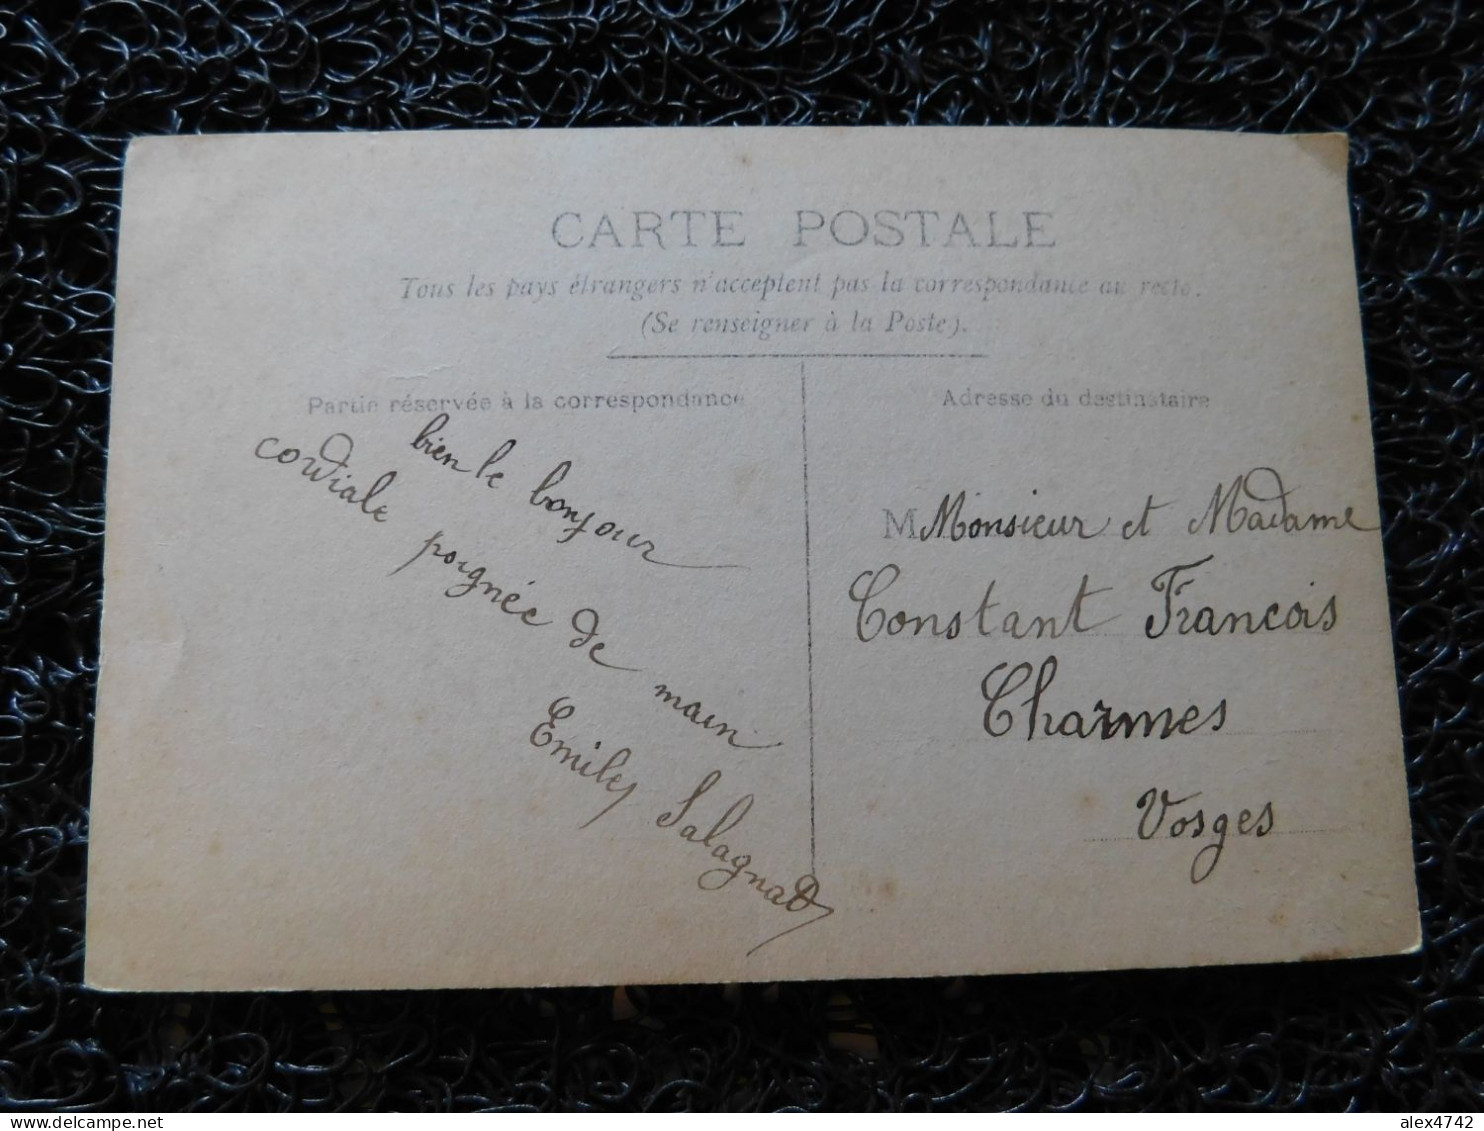 CARTE POSTALE
Tous les pays étrangers n'acceptent pas la correspondance au recto.
(Se renseigner à la Poste).
Partie réservée à la correspondance
bien le bonjour
cordiale poignée de main
Emile Salagnad
Adresse du destinataire
M Monsieur et Madame
Constant Francois
Charmes
Vosges
alex4742